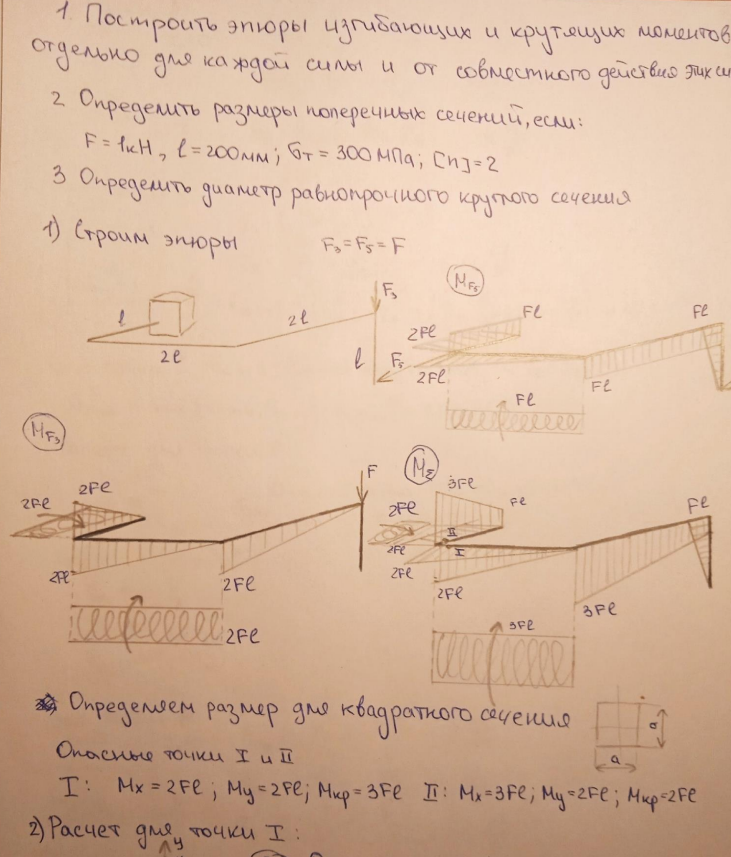 1. Построить эпюры изгибающих и крутящих моментов
отдельно для каждой силы и от совместного действия этих си
2. Определить размеры поперечных сечений, если:
F = 1кН, l = 200мм; σт = 300МПа; [n] = 2
3 Определить диаметр равнопрочного круглого сечения
1) Строим эпюры F₃ = F₅ = F
l 2l 2l F₃ l F₅
M_F₅
Fl 2Fl 2Fl Fl Fl
Fl
M_F₃
2Fl 2Fl F
2Fl 2Fl
2Fl
M_Σ
3Fl 2Fl Fl Fl
II I
2Fl 2Fl 2Fl 3Fl
3Fl
Определяем размер для квадратного сечения
a a
Опасные точки I и II
I: Mx = 2Fl; My = 2Fl; Mкр = 3Fl II: Mx = 3Fl; My = 2Fl; Mкр = 2Fl
2) Расчет для точки I:
y